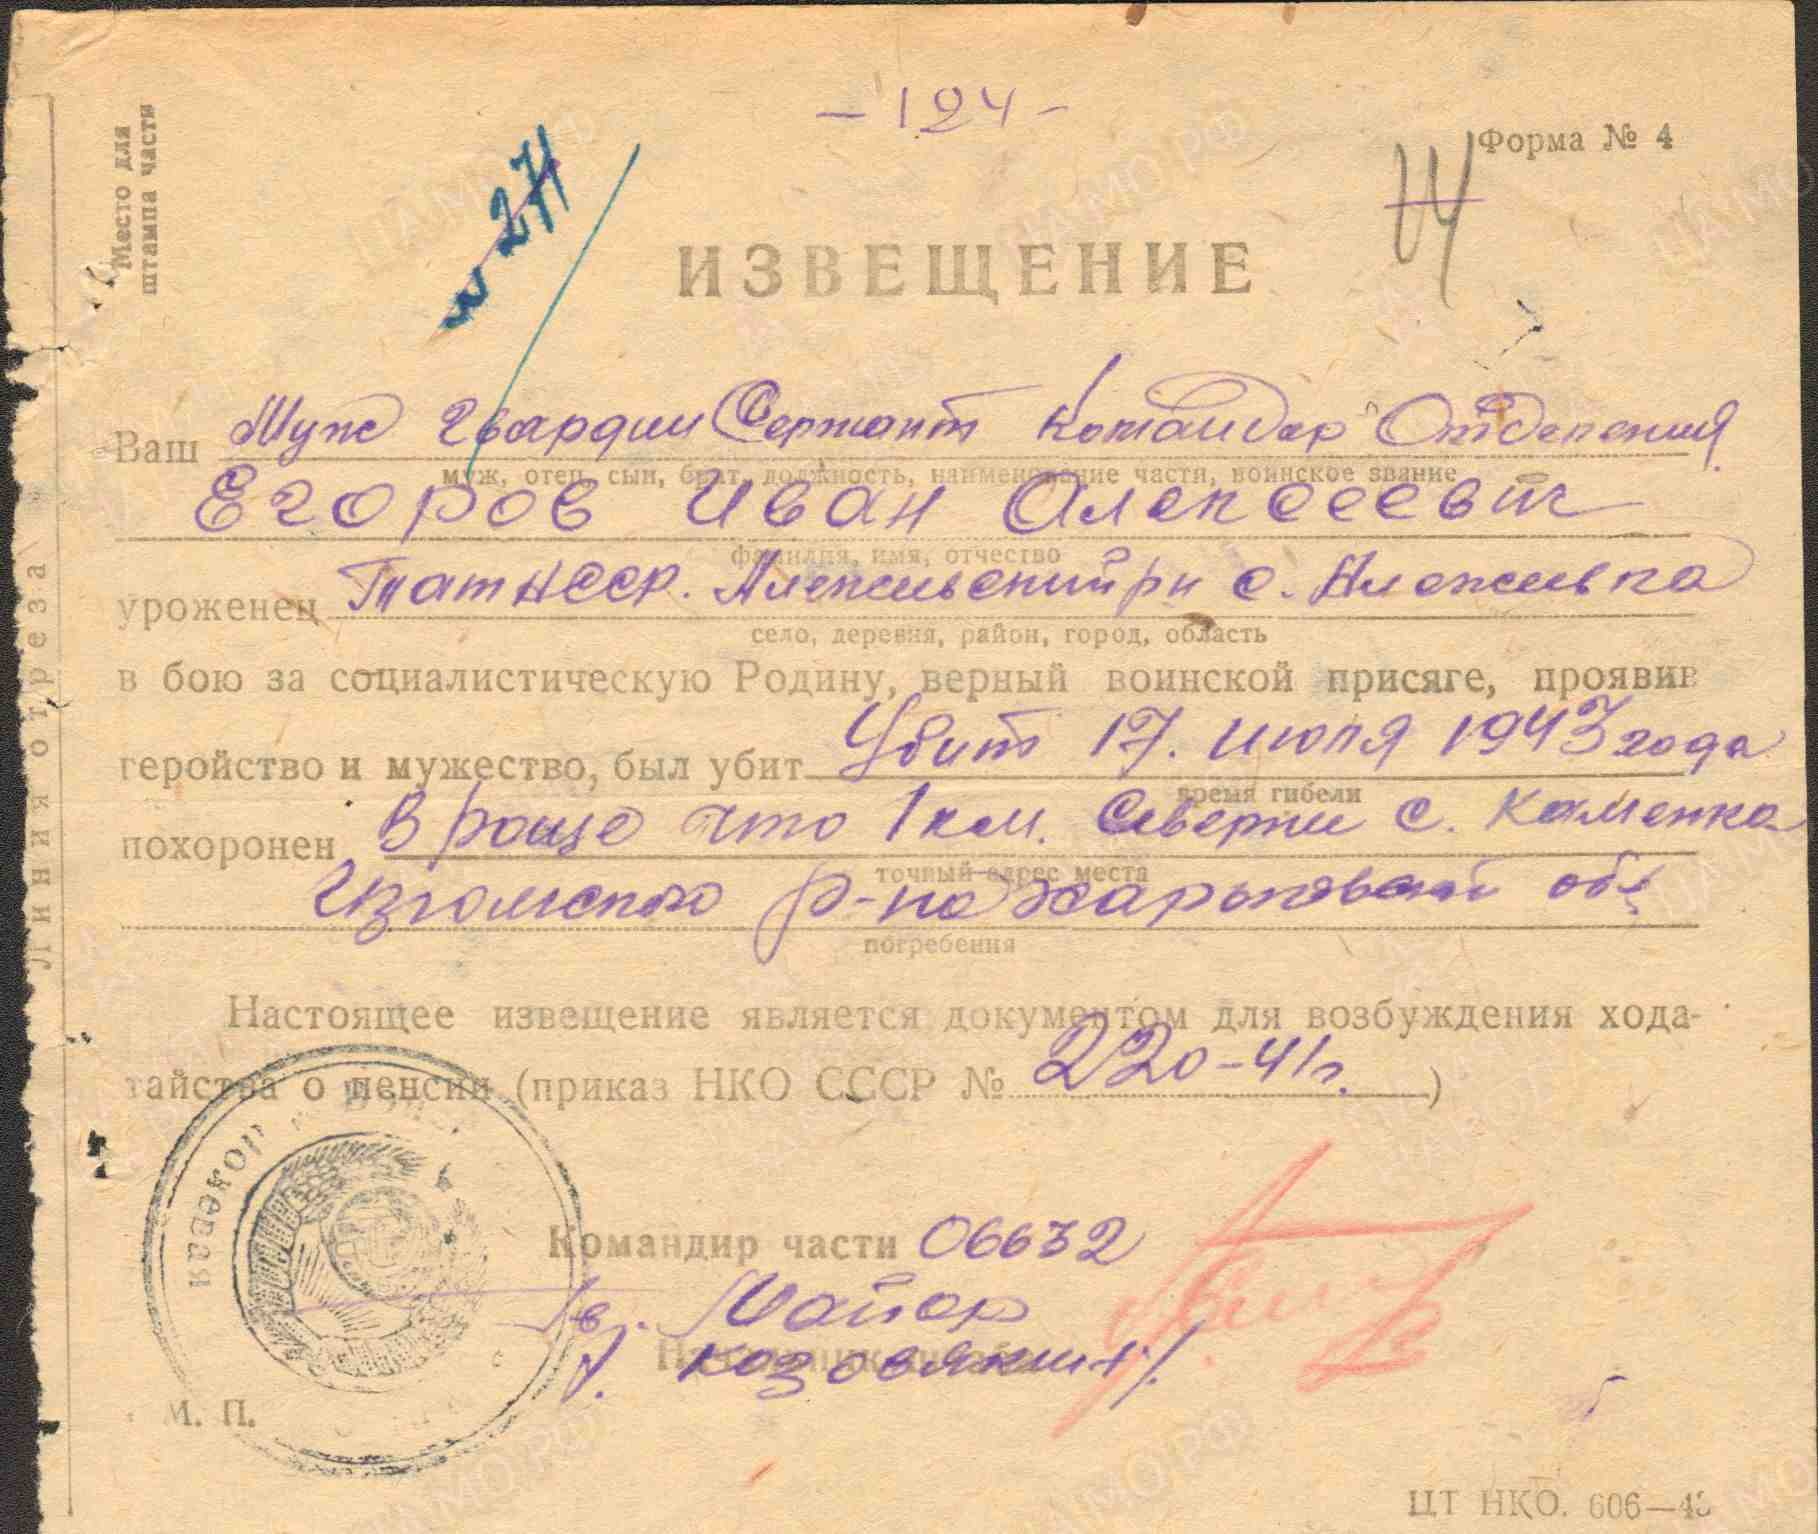 Место для
штампа части
-124-
Форма № 4
№ 271
14
ИЗВЕЩЕНИЕ
Ваш Муж Гвардии Сержант Командир Отделения
муж, отец, сын, брат, должность, наименование части, воинское звание
Егоров Иван Алексеевич
фамилия, имя, отчество
уроженец ТатАССР.
село, деревня, район, город, область
в бою за социалистическую Родину, верный воинской присяге, проявив
геройство и мужество, был убит Убит 17. июля 1943 года
время гибели
похоронен В роще что 1 км. Севернее с. Каменка
точный адрес места
Изюмского р-на Харьковской обл
погребения
Настоящее извещение является документом для возбуждения хода-
тайства о пенсии (приказ НКО СССР № 220-41г.)
Командир части 06632
Гв. Майор
М. П.
Линия отреза
Полевая
ЦТ НКО. 606—43
ЦАМО.РФ